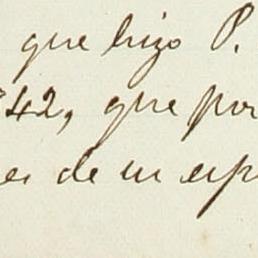 que hizo P.
42, que por
es de un esp